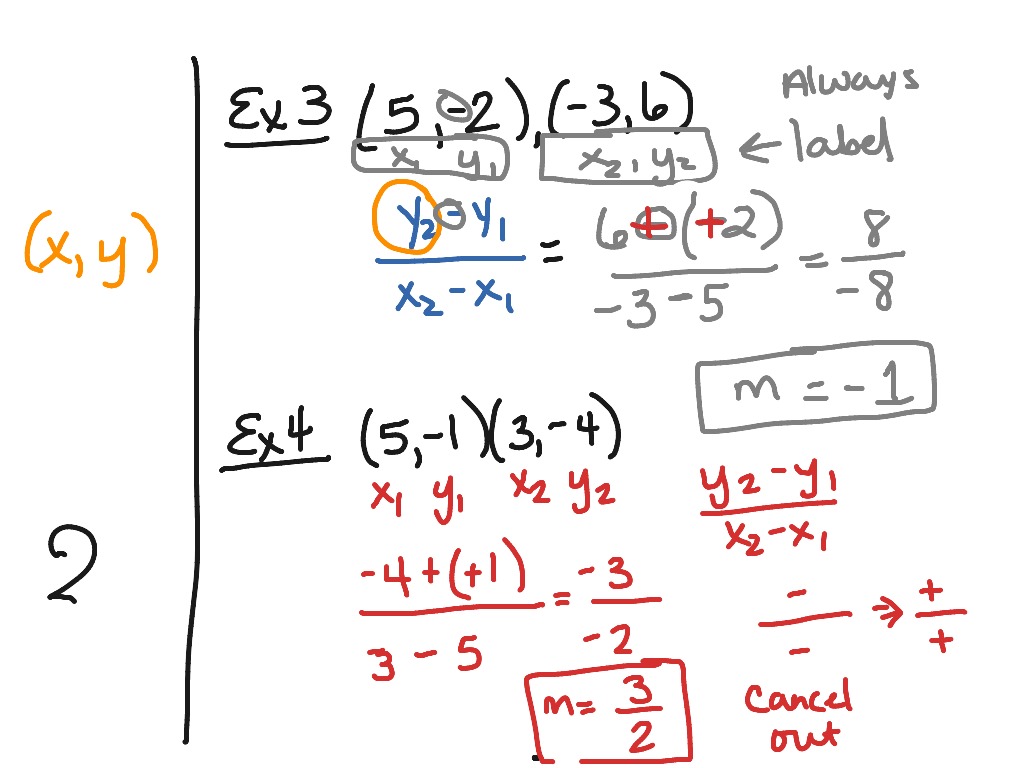 Ex 3 (5, -2), (-3, 6)
Always
label
x₁ y₁ x₂, y₂ ←
(x, y)
y₂ - y₁ / x₂ - x₁ = 6 + (+2) / -3 - 5 = 8 / -8
m = -1
Ex 4 (5, -1)(3, -4)
x₁ y₁ x₂ y₂
y₂ - y₁ / x₂ - x₁
2
-4 + (+1) / 3 - 5 = -3 / -2
- / - → + / +
m = 3 / 2
Cancel
out